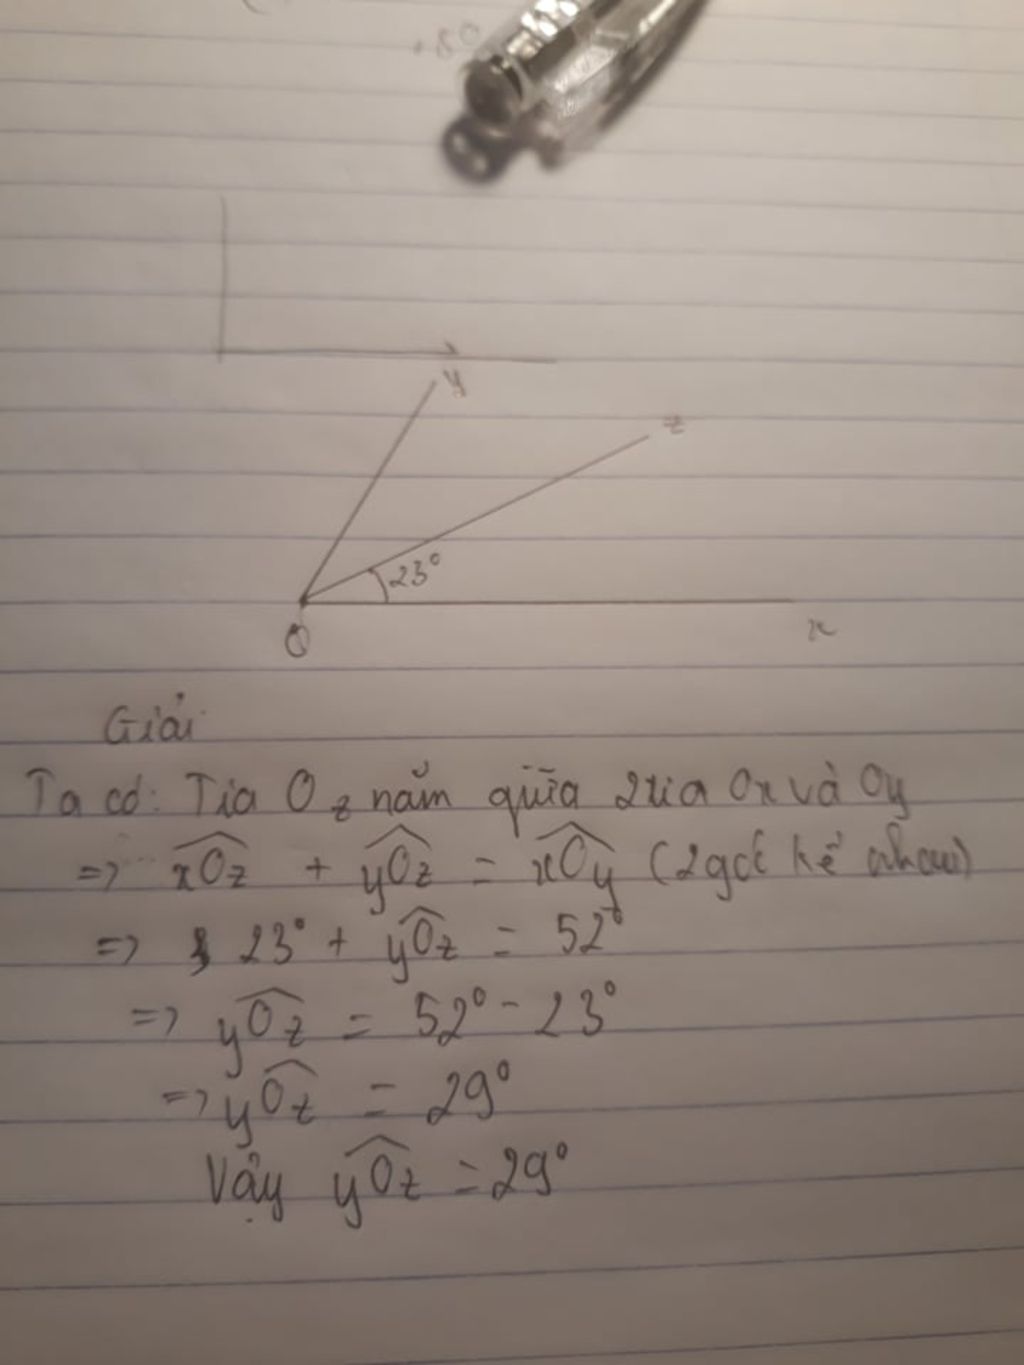 y
z
23°
O
x
Giải
Ta có: Tia Oz nằm giữa 2 tia Ox và Oy
=> xOz + yOz = xOy (2 góc kề nhau)
=> 23° + yOz = 52°
=> yOz = 52° - 23°
=> yOz = 29°
Vậy yOz = 29°